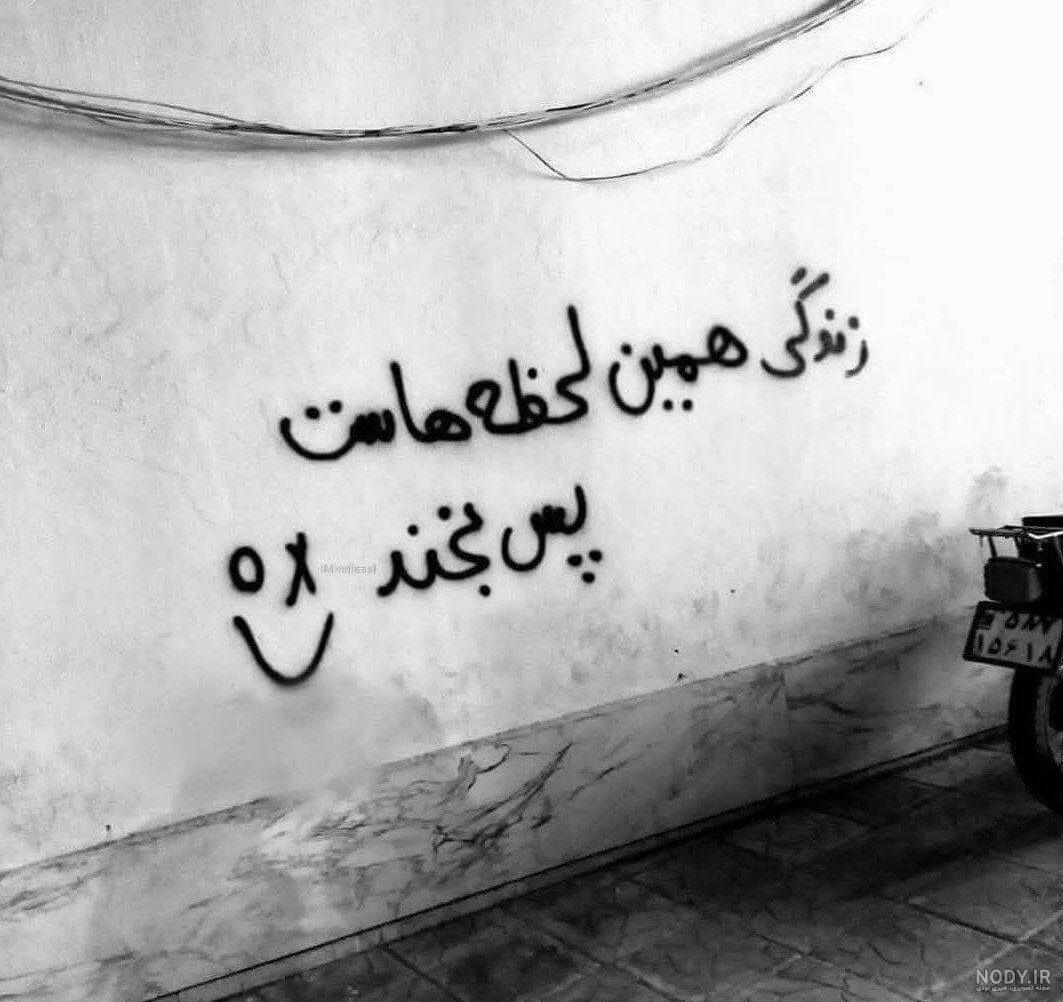 زندگی همین لحظه هاست
پس بخند
۱۵۶۱۸
NODY.IR